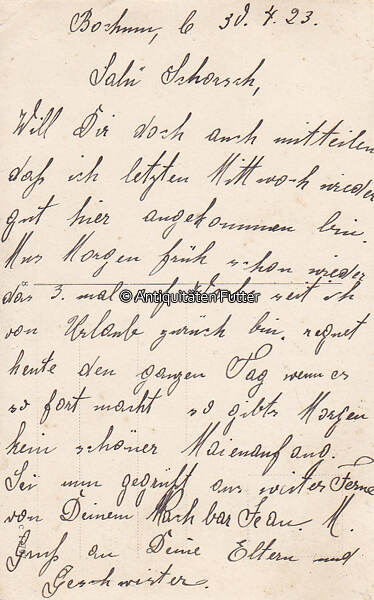 Bochum, C 30. 4. 23.
Salü Schorsch,
Will Dir doch auch mitteilen
daß ich letzten Mittwoch wieder
gut hier angekommen bin.
Mus Morgen früh schon wieder
das 3. mal auf seit ich
© Antiquitäten Futter
von Urlaub zurück bin. regnet
heute den ganzen Tag wenn es
so fort macht so gibts Morgen
kein schöner Maienanfang.
Sei nun gegrüßt aus weiter Ferne
von Deinem Nachbar Jean. M.
Gruß an Deine Eltern und
Geschwister.